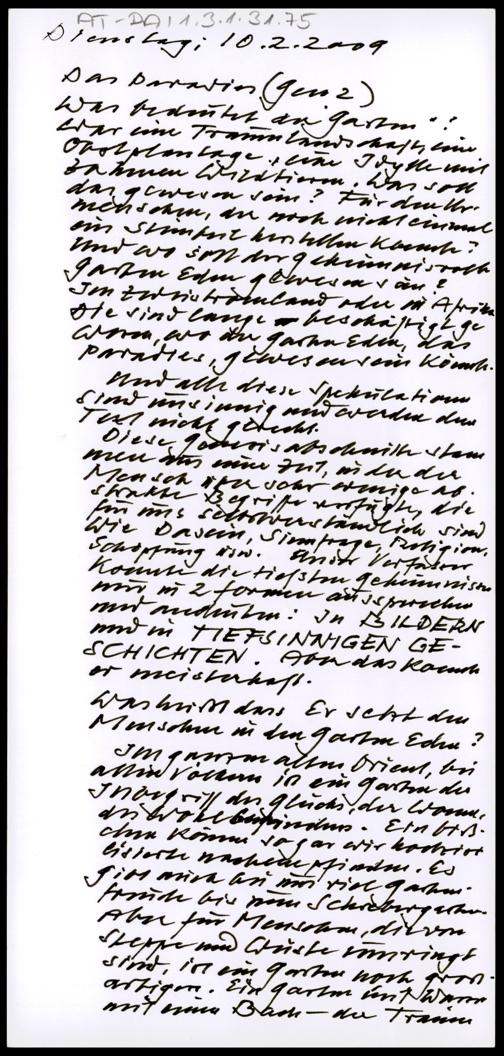 AT-DA 1.3.1.31.75
Dienstag, 10.2.2009
Das Paradies (Gen 2)
Was bedeutet der "Garten"?
War eine Traumlandschaft, eine
Obstplantage, eine Idylle mit
zahmen Wildtieren. Was soll
das gewesen sein? Für den Ur-
menschen, der noch nicht einmal
ein Steinbeil herstellen konnte?
Und wo soll der geheimnisvolle
Garten Eden gewesen sein?
Im Zweistromland oder in Afrika
Die sind lange beschäftigt ge
wesen, wo der Garten Eden, das
Paradies, gewesen sein könnte.
Und alle diese Spekulationen
sind unsinnig und werden dem
Text nicht gerecht.
Diese Genesisabschnitte stam
men aus einer Zeit, in der der
Mensch über sehr wenige ab-
strakte Begriffe verfügte, die
für uns selbstverständlich sind
wie Dasein, Sinnfrage, Religion,
Schöpfung usw. Unser Verfasser
konnte die tiefsten Geheimnisse
nur in 2 Formen aussprechen
und andeuten: In BILDERN
und in TIEFSINNIGEN GE-
SCHICHTEN. Aber das konnte
er meisterhaft.
Was heißt das Er setzt den
Menschen in den Garten Eden?
Im ganzen alten Orient, bei
allen Völkern ist ein Garten der
Inbegriff des Glücks, der Wonne,
des Wohlbefindens. Ein biß-
chen können sogar wir hochzivi
lisierte nachempfinden. Es
gibt auch bei uns viel Garten-
freude bis zum Schrebergarten.
Aber für Menschen, die von
Steppe und Wüste umringt
sind, ist ein Garten noch groß-
artiger. Ein Garten mit Wasser
mit einem Bach – der Traum